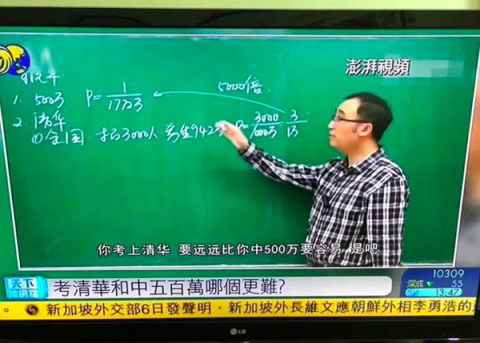 澎湃視頻
5000倍
1. 500万 P=1/1773
2. 清华
①全国 招3000人 考生942万 P=3000/1000万 3/13
你考上清华 要远远比你中500万要容易 是吧
天下
考清華和中五百萬哪個更難?
10309
深成 55
13:47
新加坡外交部6日發聲明，新加坡外長維文應朝鮮外相李勇浩的
LG